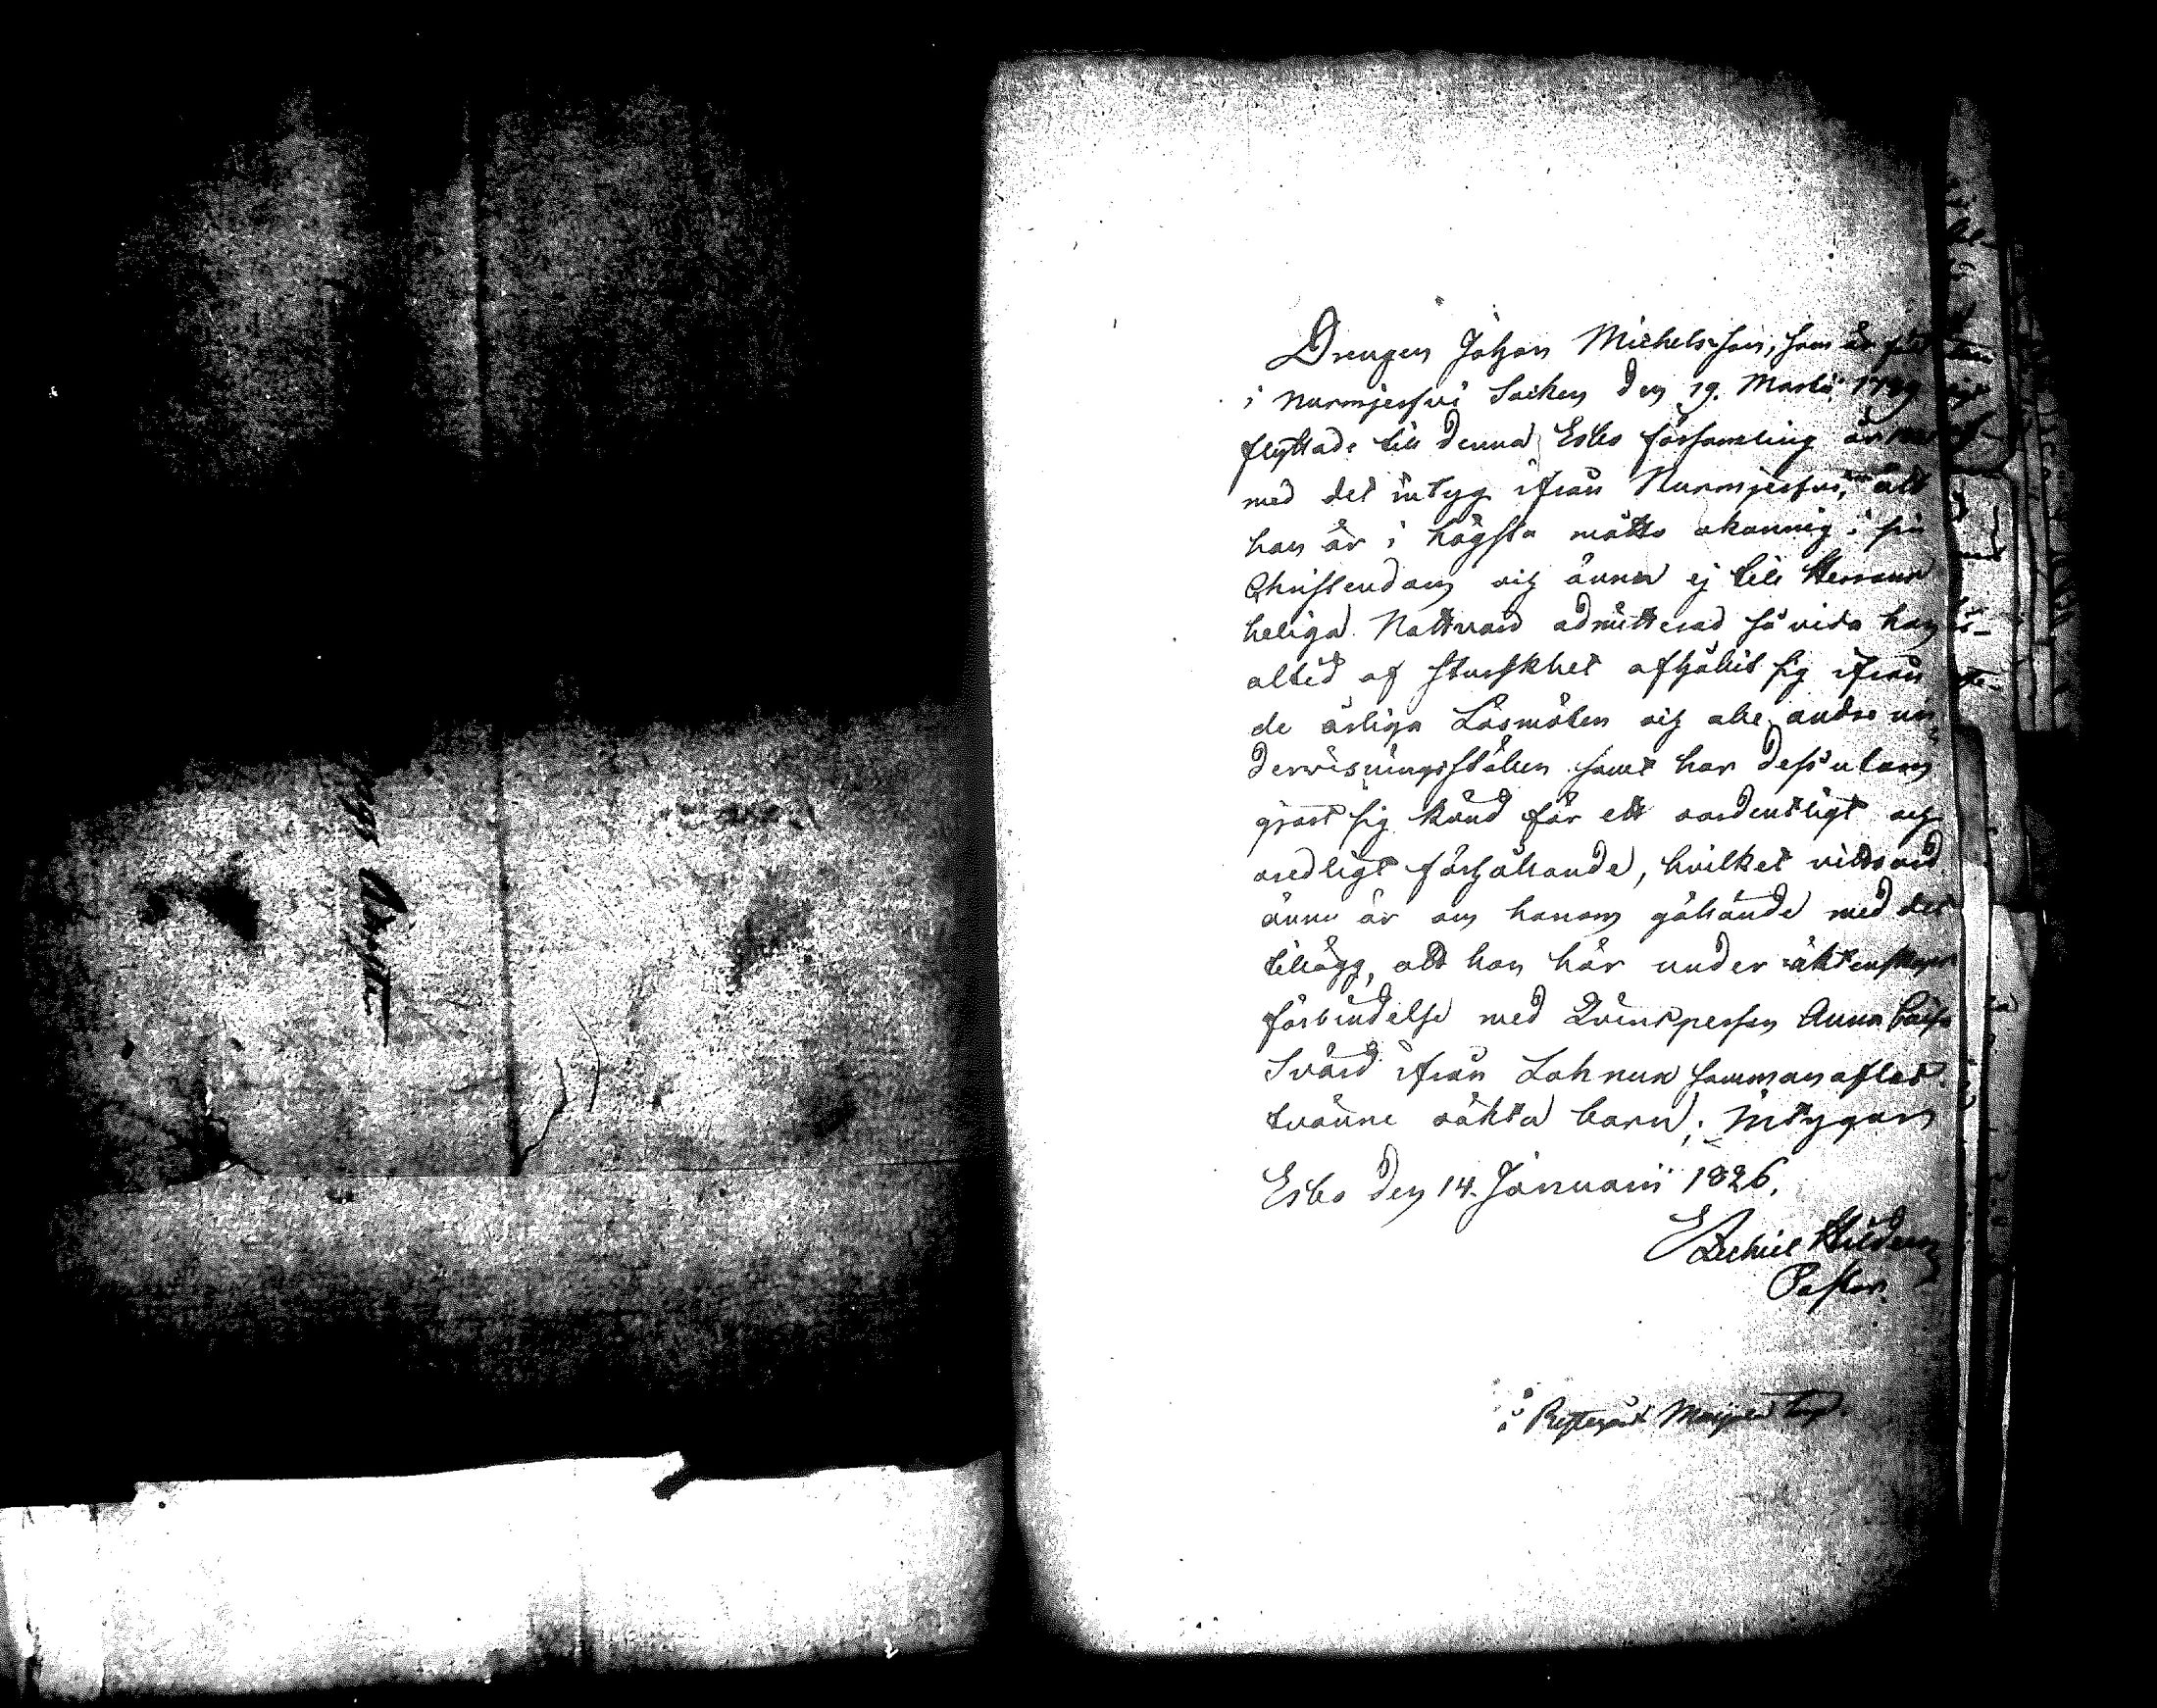 Drengen Johan Michelsson, som är född
i Nurmijerfvi Socken den 19. Martii 1789
flyttade till denna Esbo församling år
med det intyg ifrån Nurmijerfvi, att
han är i högsta måtto okunnig i sin
Christendom och ännu ej till Herrans
heliga Nattvard admitterad så vida han
altid af stursskhet afhållit sig ifrån
de årliga Läsmöten och alla andra un¬
dervisningsställen samt har dessutom
gjort sig känd för ett oordentligt och
oredligt förhållande, hvilket vittsord
ännu är om honom gällande med det
tillägg, att han här under äktenskaps
förbindelse med Qvinspersen Anna Caisa
Svärd ifrån Lohnun sammanaflat
tvänne oäkta barn; Intygar
Esbo den 14. Januarii 1826.
Ezechiel Hildeen
Pastor.